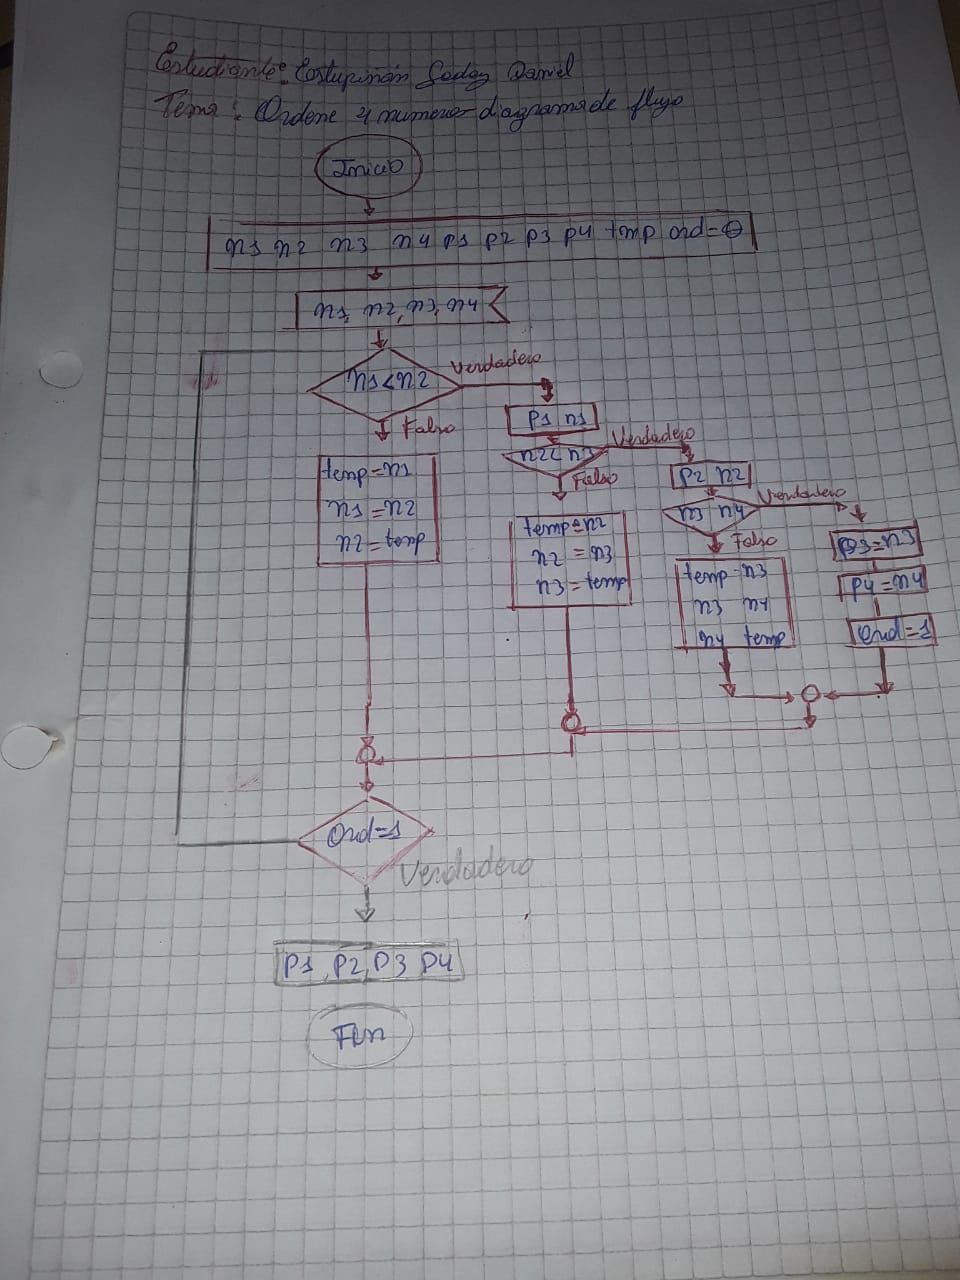 Estudiante: Estupiñán Goday Daniel
Tema: Ordene 4 numeros diagrama de flujo
Inicio
n1 n2 n3 n4 p1 p2 p3 p4 tmp ord=0
n1, n2, n3, n4
n1<n2
Verdadero
Falso
P1 n1
n2< n3
Verdadero
Falso
P2 n2
n3 n4
Verdadero
Falso
temp=n1
n1=n2
n2=temp
temp=n2
n2=n3
n3=temp
temp=n3
n3 n4
n4 temp
P3=n3
P4=n4
Ord=1
Ord=1
Verdadero
P1, P2, P3 P4
Fin